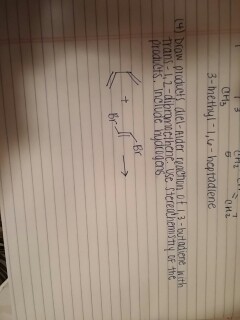 CH3
CH2
CH2
3-methyl-1,6-heptadiene
(4) Draw products diel-Alder reaction of 1,3-butadiene with
trans-1,2-dibromoethene. Use stereochemistry of the
products. Include hydrogens
+
Br
Br